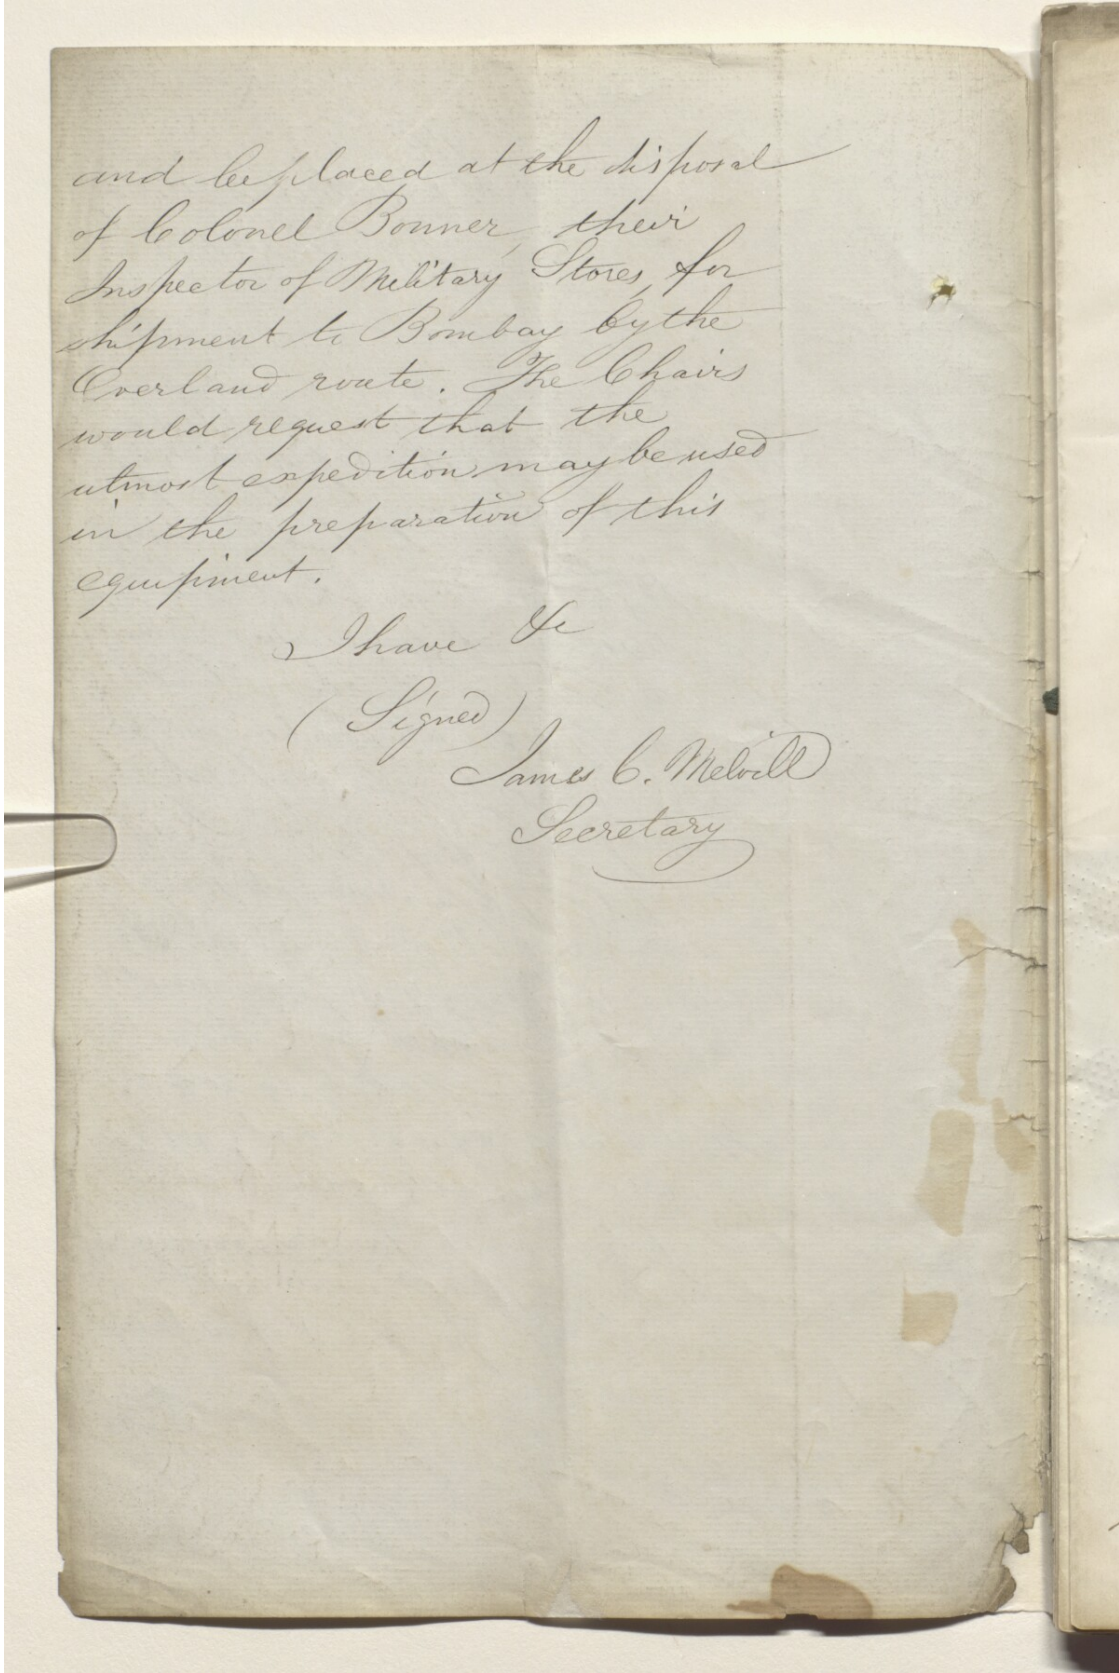 and be placed at the disposal
of Colonel Bonner, their
Inspector of Military Stores, for
shipment to Bombay by the
Overland route. The Chairs
would request that the
utmost expedition may be used
in the preparation of this
equipment.
I have &c
(Signed)
James C. Melvill
Secretary